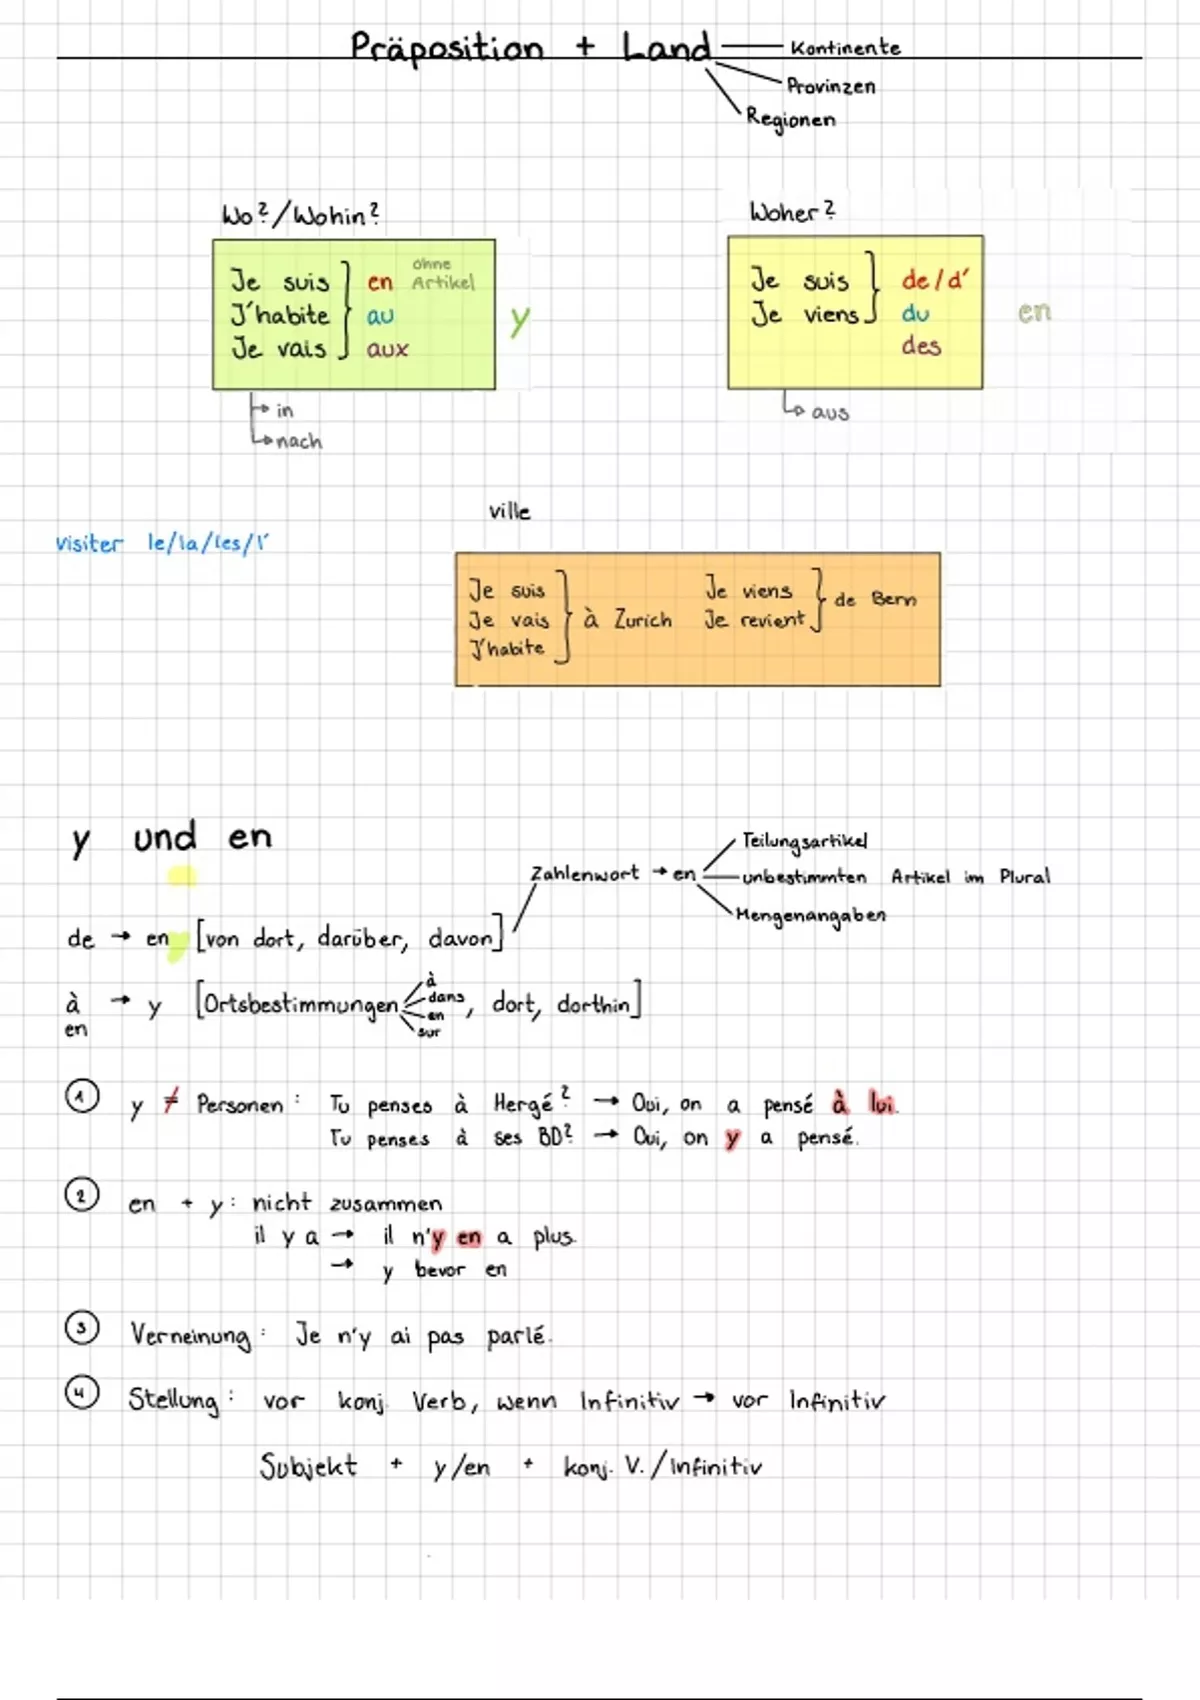 Präposition + Land
Kontinente
Provinzen
Regionen
Wo?/Wohin?
Je suis
J'habite
Je vais
en ohne Artikel
au
aux
y
in
nach
Woher?
Je suis
Je viens
de/d'
du
des
en
aus
visiter le/la/les/l'
ville
Je suis
Je vais
J'habite
à Zurich
Je viens
Je revient
de Bern
y und en
Zahlenwort → en
Teilungsartikel
unbestimmten Artikel im Plural
Mengenangaben
de → en [von dort, darüber, davon]
à → y [Ortsbestimmungen à dans en sur, dort, dorthin]
en
1 y ≠ Personen: Tu penses à Hergé? → Oui, on a pensé à lui.
Tu penses à ses BD? → Oui, on y a pensé.
2 en + y: nicht zusammen
il y a → il n'y en a plus.
→ y bevor en
3 Verneinung: Je n'y ai pas parlé.
4 Stellung: vor konj. Verb, wenn Infinitiv → vor Infinitiv
Subjekt + y/en + konj. V./Infinitiv